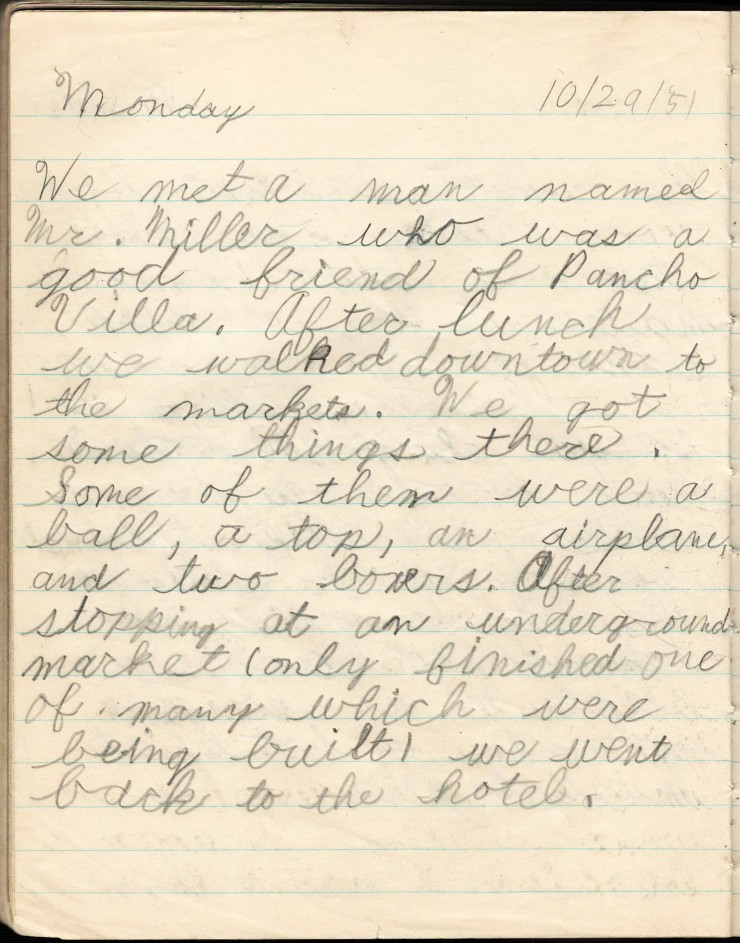 Monday 10/29/51
We met a man named
Mr. Miller who was a
good friend of Pancho
Villa. After lunch
we walked downtown to
the markets. We got
some things there.
Some of them were a
ball, a top, an airplane,
and two boxers. After
stopping at an underground
market (only finished one
of many which were
being built) we went
back to the hotel.